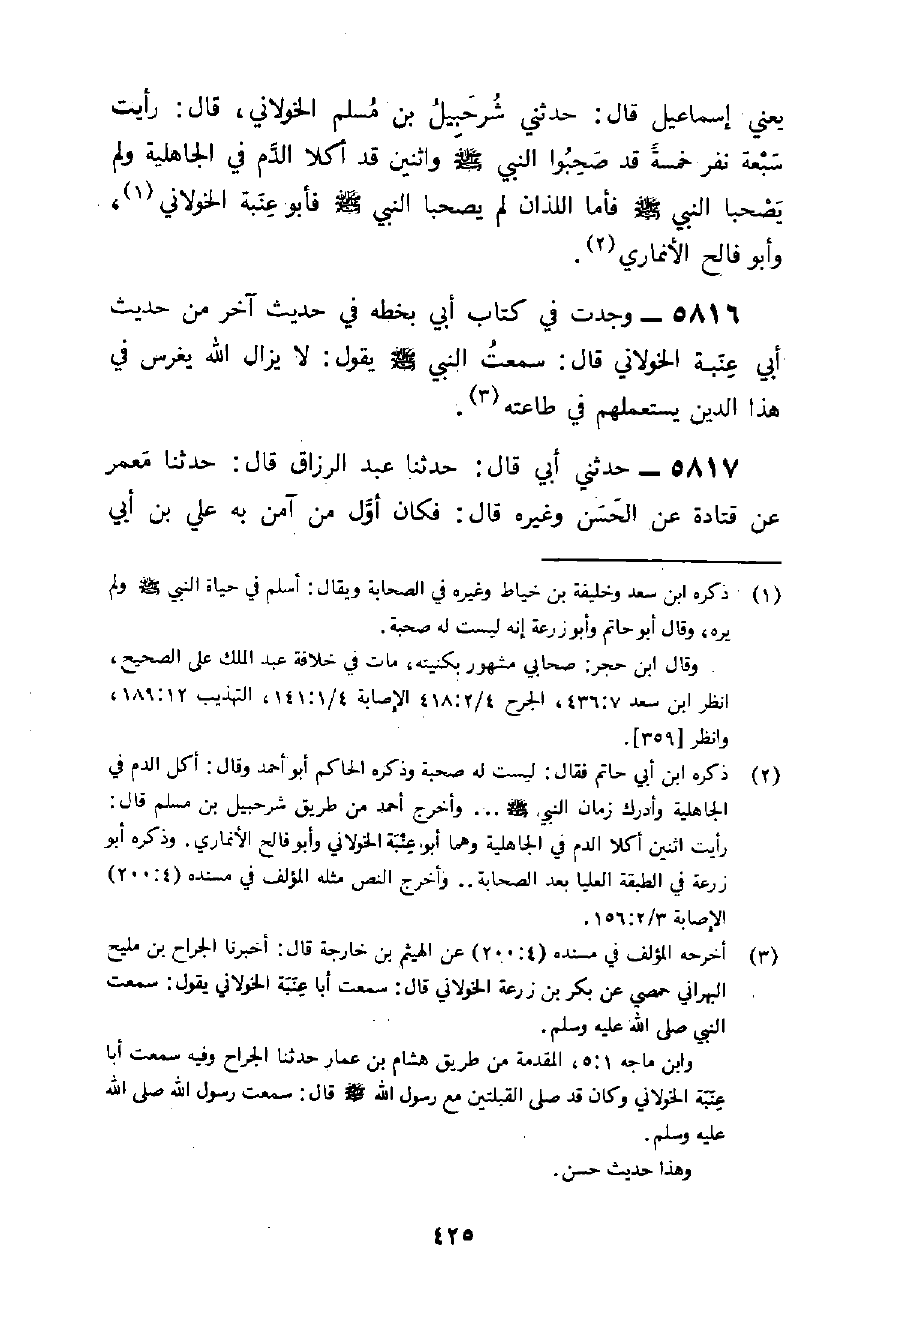 يعني إسماعيل قال: حدثني شُرحَبِيلُ بن مُسلم الخولاني، قال: رأيت
سَبْعة نفر خمسةً قد صَحِبُوا النبي ﷺ واثنين قد أكلا الدَّم في الجاهلية ولم
يَصْحبا النبي ﷺ فأما اللذان لم يصحبا النبي ﷺ فأبو عِنَبة الخولاني (١)،
وأبو فالح الأنماري (٢).
٥٨١٦ ــ وجدت في كتاب أبي بخطه في حديث آخر من حديث
أبي عِنَبة الخولاني قال: سمعتُ النبي ﷺ يقول: لا يزال الله يغرس في
هذا الدين يستعملهم في طاعته (٣).
٥٨١٧ ــ حدثني أبي قال: حدثنا عبد الرزاق قال: حدثنا مَعمر
عن قتادة عن الحَسَن وغيره قال: فكان أوَّل من آمن به علي بن أبي
(١) ذكره ابن سعد وخليفة بن خياط وغيره في الصحابة ويقال: أسلم في حياة النبي ﷺ ولم
يره، وقال أبو حاتم وأبو زرعة إنه ليست له صحبة.
وقال ابن حجر: صحابي مشهور بكنيته، مات في خلافة عبد الملك على الصحيح،
انظر ابن سعد ٤٣٦:٧، الجرح ٤١٨:٢/٤ الإصابة ١٤١:١/٤، التهذيب ١٨٩:١٢،
وانظر [٣٥٩].
(٢) ذكره ابن أبي حاتم فقال: ليست له صحبة وذكره الحاكم أبو أحمد وقال: أكل الدم في
الجاهلية وأدرك زمان النبي ﷺ ... وأخرج أحمد من طريق شرحبيل بن مسلم قال:
رأيت اثنين أكلا الدم في الجاهلية وهما أبو عِنَبَة الخولاني وأبو فالح الأنماري. وذكره أبو
زرعة في الطبقة العليا بعد الصحابة .. وأخرج النص مثله المؤلف في مسنده (٢٠٠:٤)
الإصابة ١٥٦:٢/٣.
(٣) أخرجه المؤلف في مسنده (٢٠٠:٤) عن الهيثم بن خارجة قال: أخبرنا الجراح بن مليح
البهراني حمصي عن بكر بن زرعة الخولاني قال: سمعت أبا عِنَبَة الخولاني يقول: سمعت
النبي صلى الله عليه وسلم.
وابن ماجه ٥:١، المقدمة من طريق هشام بن عمار حدثنا الجراح وفيه سمعت أبا
عِنَبَة الخولاني وكان قد صلى القبلتين مع رسول الله ﷺ قال: سمعت رسول الله صلى الله
عليه وسلم.
وهذا حديث حسن.
٤٢٥